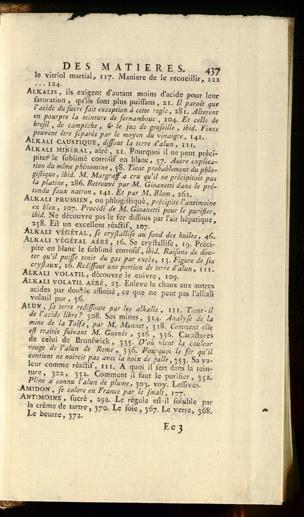 DES MATIERES. 437
le vitriol martial, 117. Maniere de le recueillir, 122
... 124.
ALKALIS, ils exigent d'autant moins d'acide pour leur
saturation, qu'ils sont plus puissans, 21. Il paroît que
l'acide du sucre fait exception à cette regle, 281. Alterent
en pourpre la teinture de fernambouc, 104. Et celle de
bresil, de campêche, & le jus de groseille, ibid. Fixes
peuvent être séparés par le moyen du vinaigre, 141.
ALKALI CAUSTIQUE, dissout la terre d'alun, 111.
ALKALI MINÉRAL, aéré, 21. Pourquoi il ne peut préci-
piter le sublimé corrosif en blanc, 57. Autre explica-
tion du même phénomene, 58. Tient probablement du phlo-
gistique, ibid. M. Margraff a cru qu'il ne précipitoit pas
la platine, 286. Retrouvé par M. Gioanetti dans le pré-
tendu faux natron, 141. Et par M. Blem, 261.
ALKALI PRUSSIEN, ou phlogistiqué, précipite l'antimoine
en bleu, 107. Procédé de M. Gioanetti pour le purifier,
ibid. Ne découvre pas le fer dissous par l'air hépatique,
258. Est un excellent réactif, 107.
ALKALI VÉGÉTAL, se crystallise au fond des huiles, 46.
ALKALI VÉGÉTAL AÉRÉ, 16. Se crystallise, 19. Préci-
pite en blanc le sublimé corrosif, ibid. Raisons de dou-
ter qu'il puisse tenir du gas par excès, 13. Figure de ses
crystaux, 16. Redissout une portion de terre d'alun, 111.
ALKALI VOLATIL, découvre le cuivre, 109.
ALKALI VOLATIL AÉRÉ, 23. Enleve la chaux aux autres
acides par double affinité, ce que ne peut pas l'alkali
volatil pur, 56.
ALUN, sa terre redissoute par les alkalis, 111. Tient-il
de l'acide libre? 308. Ses mines, 314. Analyse de la
mine de la Tolfa, par M. Monnet, 318. Comment elle
est traitée suivant M. Guenée, 326, 336. Caracteres
de celui de Brunswick, 335. D'où vient la couleur
rouge de l'alun de Rome, 336. Pourquoi le fer qu'il
contient ne noircit pas avec la noix de galle, 353. Sa va-
leur comme réactif, 111. A quoi il sert dans la tein-
ture, 302, 352. Comment il faut le purifier, 352.
Pline a connu l'alun de plume, 303. voy. Lessives.
AMIDON, se colore en France par le smalt, 177.
ANTIMOINE, sucré, 292. Le régule est-il soluble par
la crême de tartre, 370. Le foie, 367. Le verre, 368.
Le beurre, 372.
Ee 3